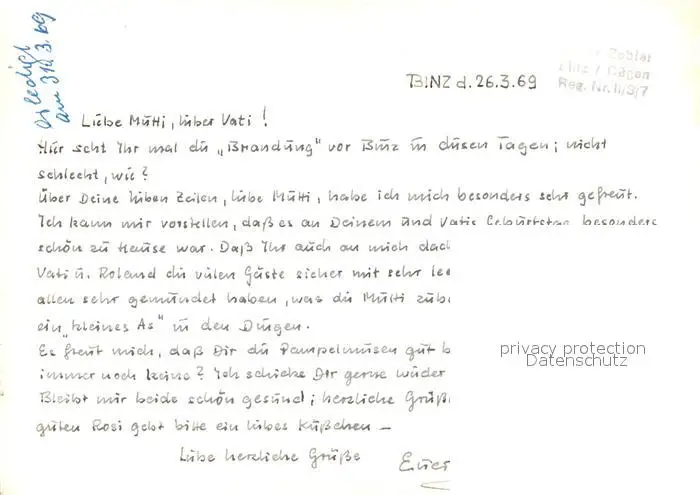 erledigt
am 31.3.69
Zobler
Binz / Rügen
Reg. Nr. II/3/7
BINZ d. 26.3.69
Liebe Mutti, lieber Vati!
Hier seht Ihr mal die „Brandung" vor Binz in diesen Tagen; nicht
schlecht, wie?
Über Deine lieben Zeilen, liebe Mutti, habe ich mich besonders sehr gefreut.
Ich kann mir vorstellen, daß es an Deinem und Vatis Geburtstag besonders
schön zu Hause war. Daß Ihr auch an mich
Vati u. Roland die vielen Gäste sicher mit sehr
allen sehr gemundet haben, was die Mutti
ein „kleines As" in den Dingen.
Es freut mich, daß Dir die Pampelmusen gut
immer noch keine? Ich schicke Dir gerne wieder
Bleibt mir beide schön gesund; herzliche Grüße
guten Rosi gebt bitte ein liebes Küßchen –
Liebe herzliche Grüße
Euer
privacy protection
Datenschutz